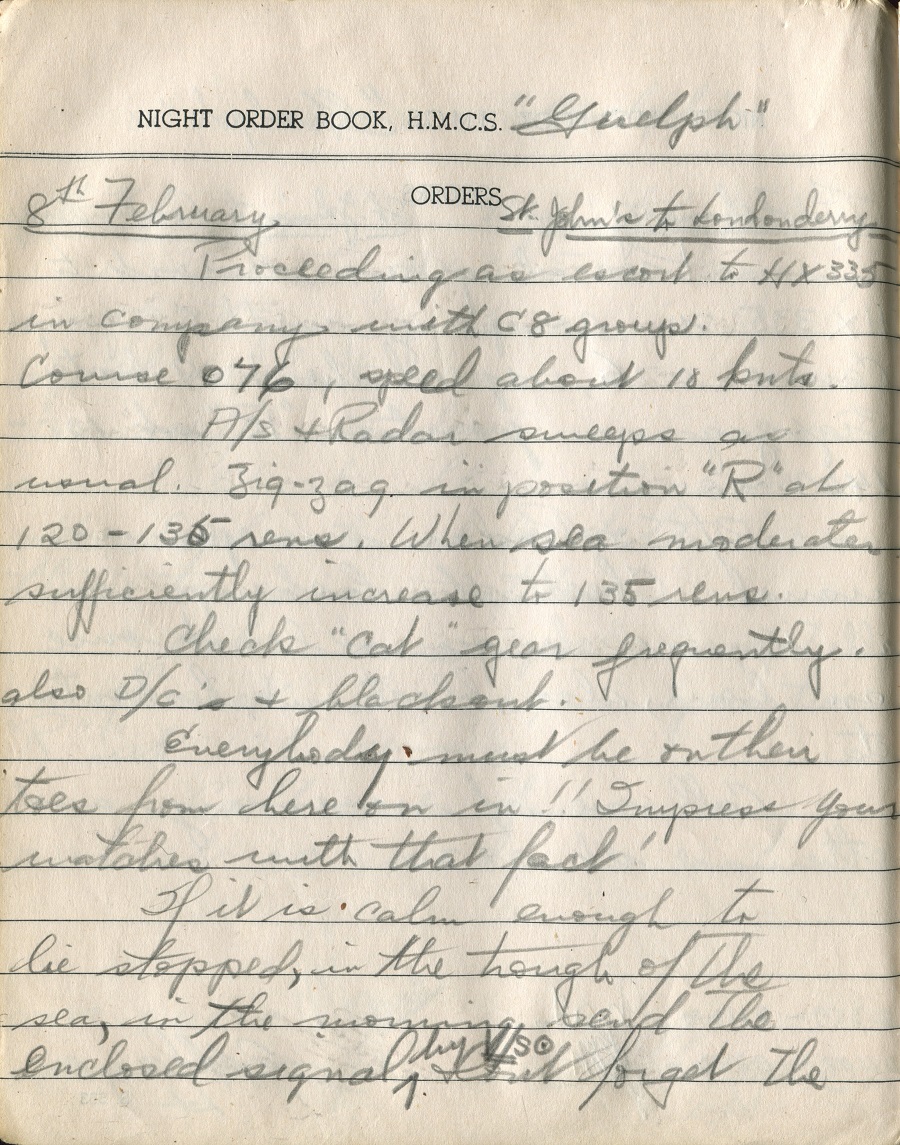 NIGHT ORDER BOOK, H.M.C.S. "Guelph"
ORDERS
8th February St. John's to Londonderry
Proceeding as escort to HX 335
in company with C8 group.
Course 076, speed about 10 knts.
A/S + Radar sweeps as
usual. Zig-zag in position "R" at
120 - 135 revs. When sea moderates
sufficiently increase to 135 revs.
Check "Cat" gear frequently.
also D/C's + blackout.
Everybody must be on their
toes from here on in!! Impress your
watches with that fact!
If it is calm enough to
lie stopped, in the trough of the
sea, in the morning send the
enclosed signal, by V/S. Don't forget the